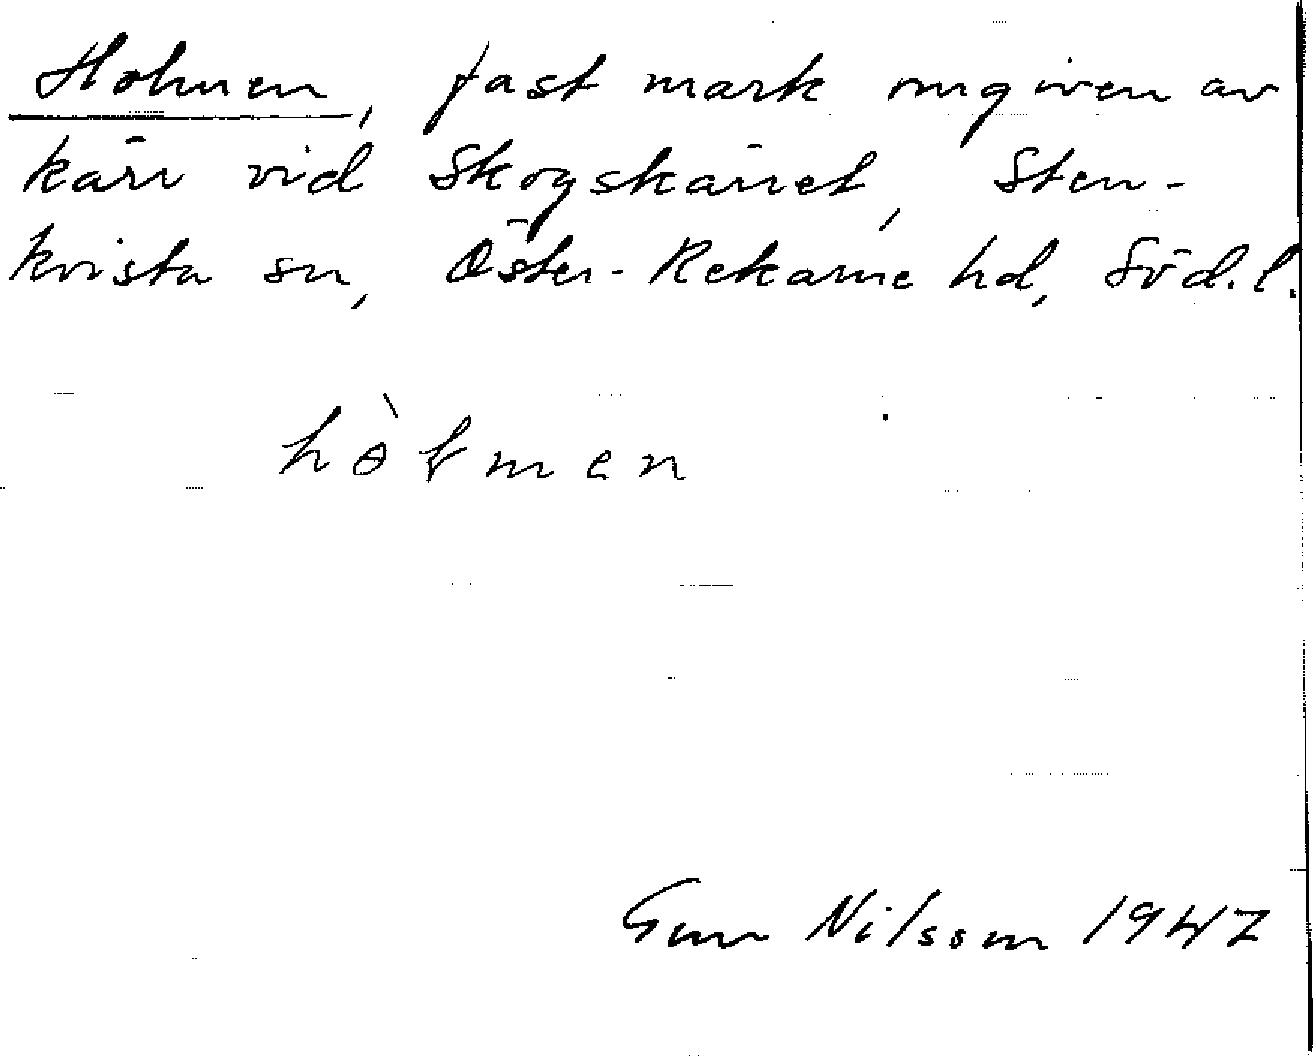 Holmen, fast mark omgiven av
kärr vid Skogskärret, Sten-
kvista sn, Öster-Rekarne hd, Söd.l.
hòłmen
Gun Nilsson 1947